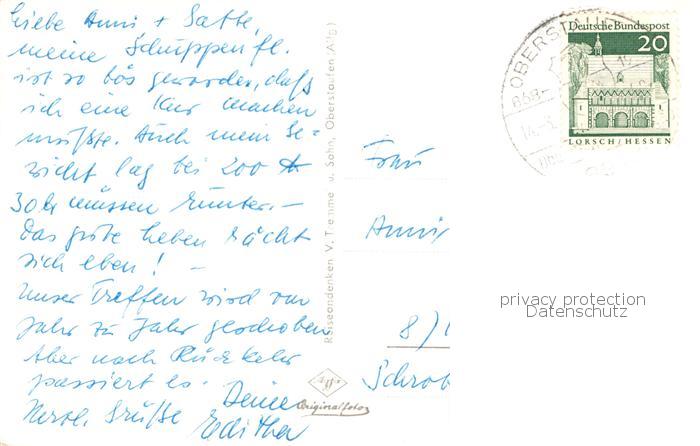 Liebe Anni + Gatte,
meine Schuppenfl.
ist so bös geworden, daß
ich eine Kur machen
mußte. Auch mein Ge=
wicht lag bei 200 ℔
30 müssen runter. –
Das gute Leben rächt
sich eben! –
Unser Treffen wird von
Jahr zu Jahr geschoben
Aber nach Rückkehr
passiert es.
Deine
Herzl. Grüße Editha
Reiseandenken V. Tremme u. Sohn, Oberstaufen (Allg.)
Agfa
Originalfoto
Frau
Anni
8/
Schrob
OBERSTAUF
868
Deutsche Bundespost
20
LORSCH/HESSEN
privacy protection
Datenschutz